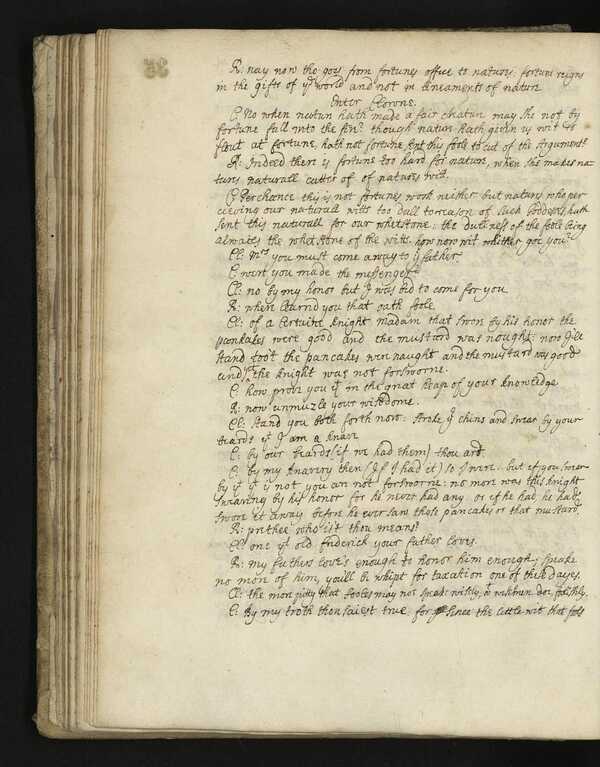 R: nay now thou goes from fortunes office to natures. fortune reigns
in the gifts of ye world and not in lineaments of nature
Enter Clowne.
C: No when nature hath made a fair creature may she not by
fortune fall into the fire? though nature hath given us wit to
flout at fortune, hath not fortune sent this foole to cut of the Argument?
R: Indeed there is fortune too hard for nature, when she makes na-
tures naturall cutter of of natures witt.
C: Perchance this is not fortunes work neither but natures who per
ceiving our naturall witts too dull to reason of such Goddess hath
sent this naturall for our whetstone: the dullness of the foole being
alwaies the whetstone of the witts. how now wit whither goe you?
Cl: Mrs you must come away to yr father
C: wert you made the messenger?
Cl: no by my honor but I was bid to come for you
R: where learnd you that oath foole
Cl: of a certaine knight madam that swore by his honor the
pancakes were good and the mustard was nought: now Ile
stand too't the pancakes were naught and the mustard was good
and yet the knight was not forsworne.
C: how prove you yt in the great heap of your knowledge
R: now unmuzle your wisedome.
Cl: stand you both forth now: stroke yr chins and swear by your
beards yt I am a knave
C: by our beards (if we had them) thou art.
C: by my knavery then (If I had it) so I were. but if you swear
by yt yt is not you are not forsworne: no more was this knight
swearing by his honor for he never had any or if he had, he had
swore it away before he ever saw those pancakes or that mustard.
R: prithee who is't thou means?
Cl: one yt old frederick your father loves.
R: my fathers love's enough to honor him enough; speake
no more of him, youll be whipt for taxation one of these dayes.
Cl: the more pitty that fooles may not speak wisely, wt wisemen doe foolishly.
C: By my troth thou saiest true: for since the little wit that fools